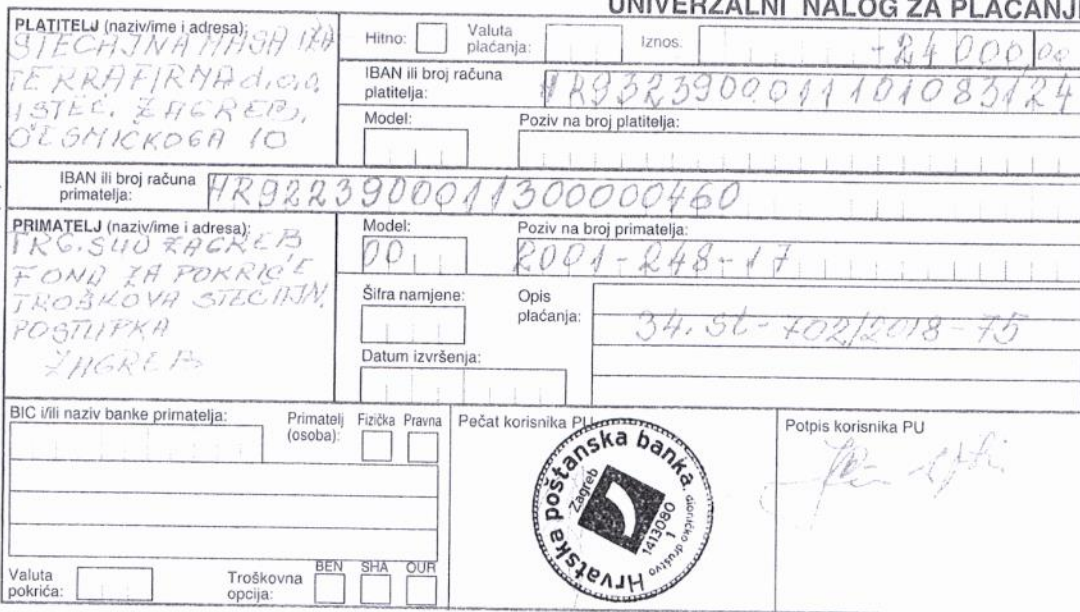 UNIVERZALNI NALOG ZA PLAĆANJE
PLATITELJ (naziv/ime i adresa):
STEČAJNA MASA IZA
TERRAFIRMA d.o.o.
ZAGREB,
10
Hitno:
Valuta plaćanja:
Iznos:
-24 000 00
IBAN ili broj računa platitelja:
HR9323900011101083124
Model:
Poziv na broj platitelja:
IBAN ili broj računa primatelja:
HR9223900011300000460
PRIMATELJ (naziv/ime i adresa):
TRG. SUD ZAGREB
FOND ZA POKRIĆE
TROŠKOVA STEČAJN.
POSTUPKA
ZAGREB
Model:
00
Poziv na broj primatelja:
2001-248-17
Šifra namjene:
Opis plaćanja:
34. St-702/2018-75
Datum izvršenja:
BIC i/ili naziv banke primatelja:
Primatelj (osoba):
Fizička Pravna
Valuta pokrića:
Troškovna opcija:
BEN SHA OUR
Pečat korisnika PU
Hrvatska poštanska banka, dioničko društvo
Zagreb
1413080
1
Potpis korisnika PU